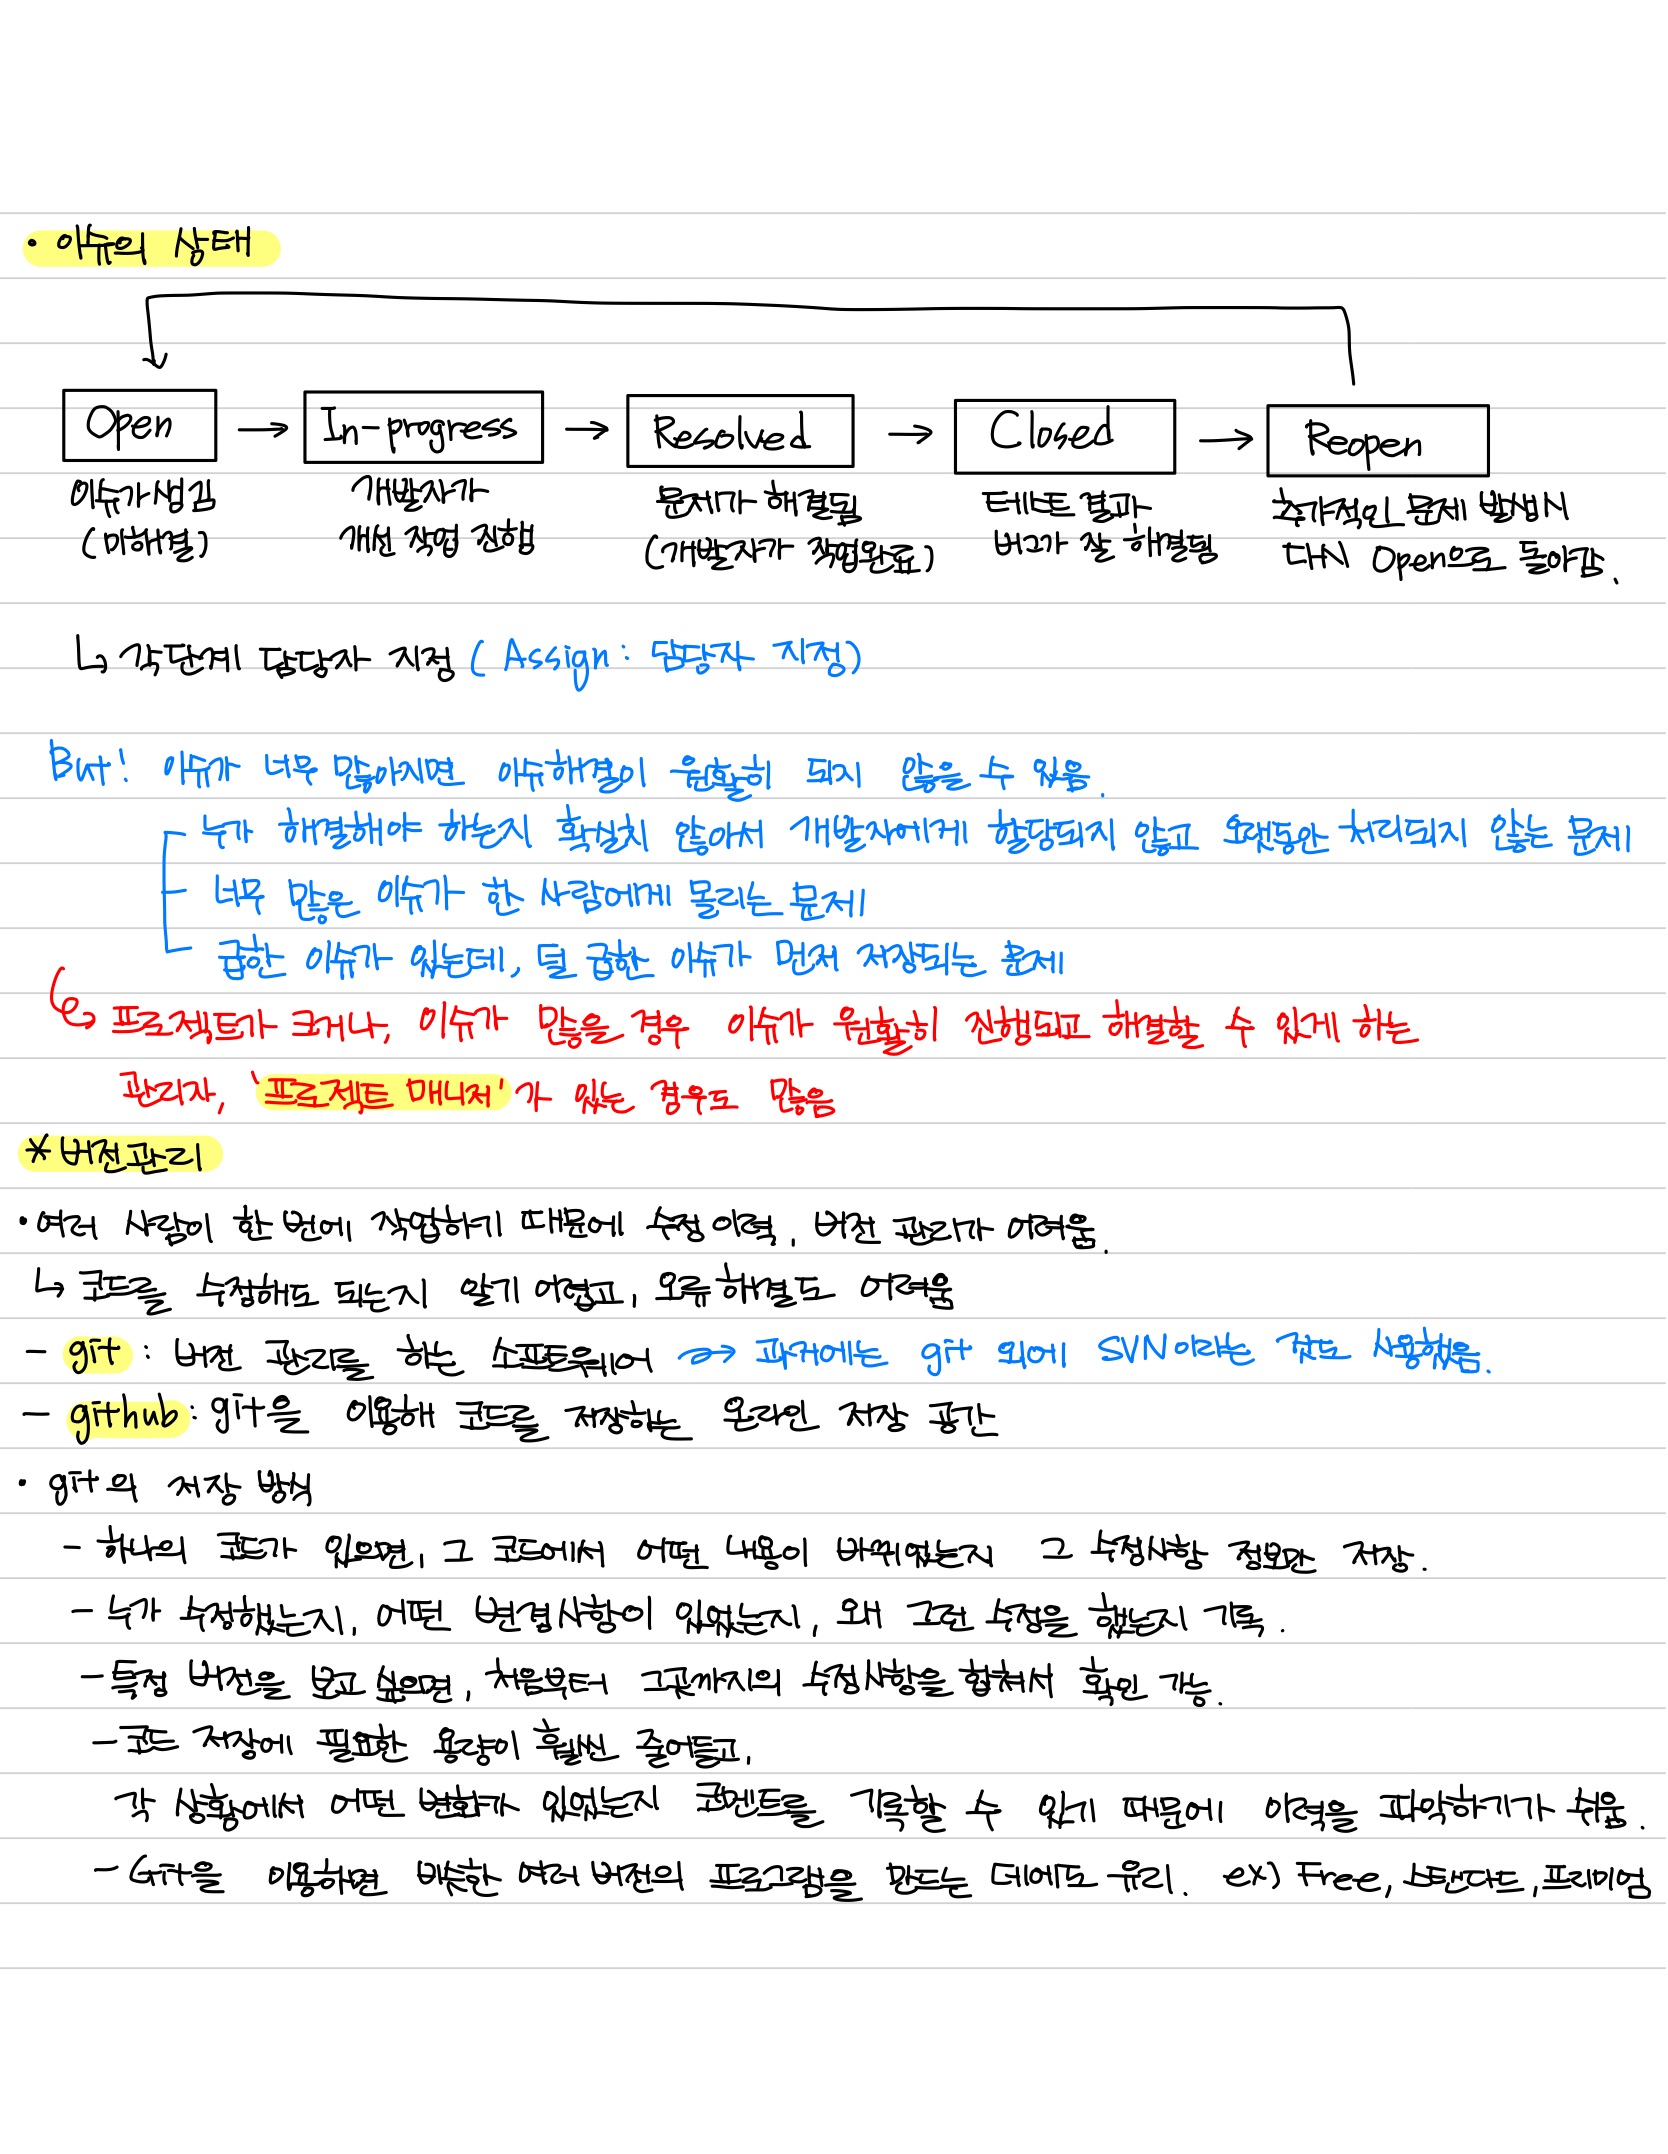 • 이슈의 상태
Open → In-progress → Resolved → Closed → Reopen
이슈가 생김 개발자가 문제가 해결됨 테스트 결과 추가적인 문제 발생시
(미해결) 개선 작업 진행 (개발자가 작업완료) 버그가 잘 해결됨 다시 Open으로 돌아감.
↳ 각단계 담당자 지정 (Assign : 담당자 지정)
But! 이슈가 너무 많아지면 이슈해결이 원활히 되지 않을 수 있음.
누가 해결해야 하는지 확실치 않아서 개발자에게 할당되지 않고 오랫동안 처리되지 않는 문제
너무 많은 이슈가 한 사람에게 몰리는 문제
급한 이슈가 있는데, 덜 급한 이슈가 먼저 저장되는 문제
↳ 프로젝트가 크거나, 이슈가 많을 경우 이슈가 원활히 진행되고 해결할 수 있게 하는
관리자, '프로젝트 매니저'가 있는 경우도 많음
* 버전관리
• 여러 사람이 한 번에 작업하기 때문에 수정 이력, 버전 관리가 어려움.
↳ 코드를 수정해도 되는지 알기 어렵고, 오류 해결도 어려움
- git : 버전 관리를 하는 소프트웨어 → 과거에는 git 외에 SVN이라는 것도 사용했음.
- github : git을 이용해 코드를 저장하는 온라인 저장 공간
• git의 저장 방식
- 하나의 코드가 있으면, 그 코드에서 어떤 내용이 바뀌었는지 그 수정사항 정보만 저장.
- 누가 수정했는지, 어떤 변경사항이 있었는지, 왜 그런 수정을 했는지 기록.
- 특정 버전을 보고 싶으면, 처음부터 그곳까지의 수정사항을 합쳐서 확인 가능.
- 코드 저장에 필요한 용량이 훨씬 줄어들고,
각 상황에서 어떤 변화가 있었는지 코멘트를 기록할 수 있기 때문에 이력을 파악하기가 쉬움.
- Git을 이용하면 비슷한 여러 버전의 프로그램을 만드는 데에도 유리. ex) Free, 스탠다드, 프리미엄